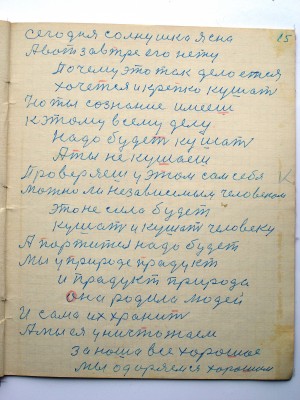 15
Сегодня солнушка ясна
А вот завтре его нету
Почему это так делоется
Хочется и крепко кушат
Но ты сознание имееш
К этому всему делу
Надо будет кушат
А ты не кушаеш
Проверяеш у этом сам себя
Можно ли независимым человеком
это не сила будет
кушат и кушат человеку
А портится надо будет
Мы у природе прадукт
и прадукт природа
она родила людей
И сама их хранит
А мы ея уништожаем
за наша все хорошае
мы одоряемся хорошим